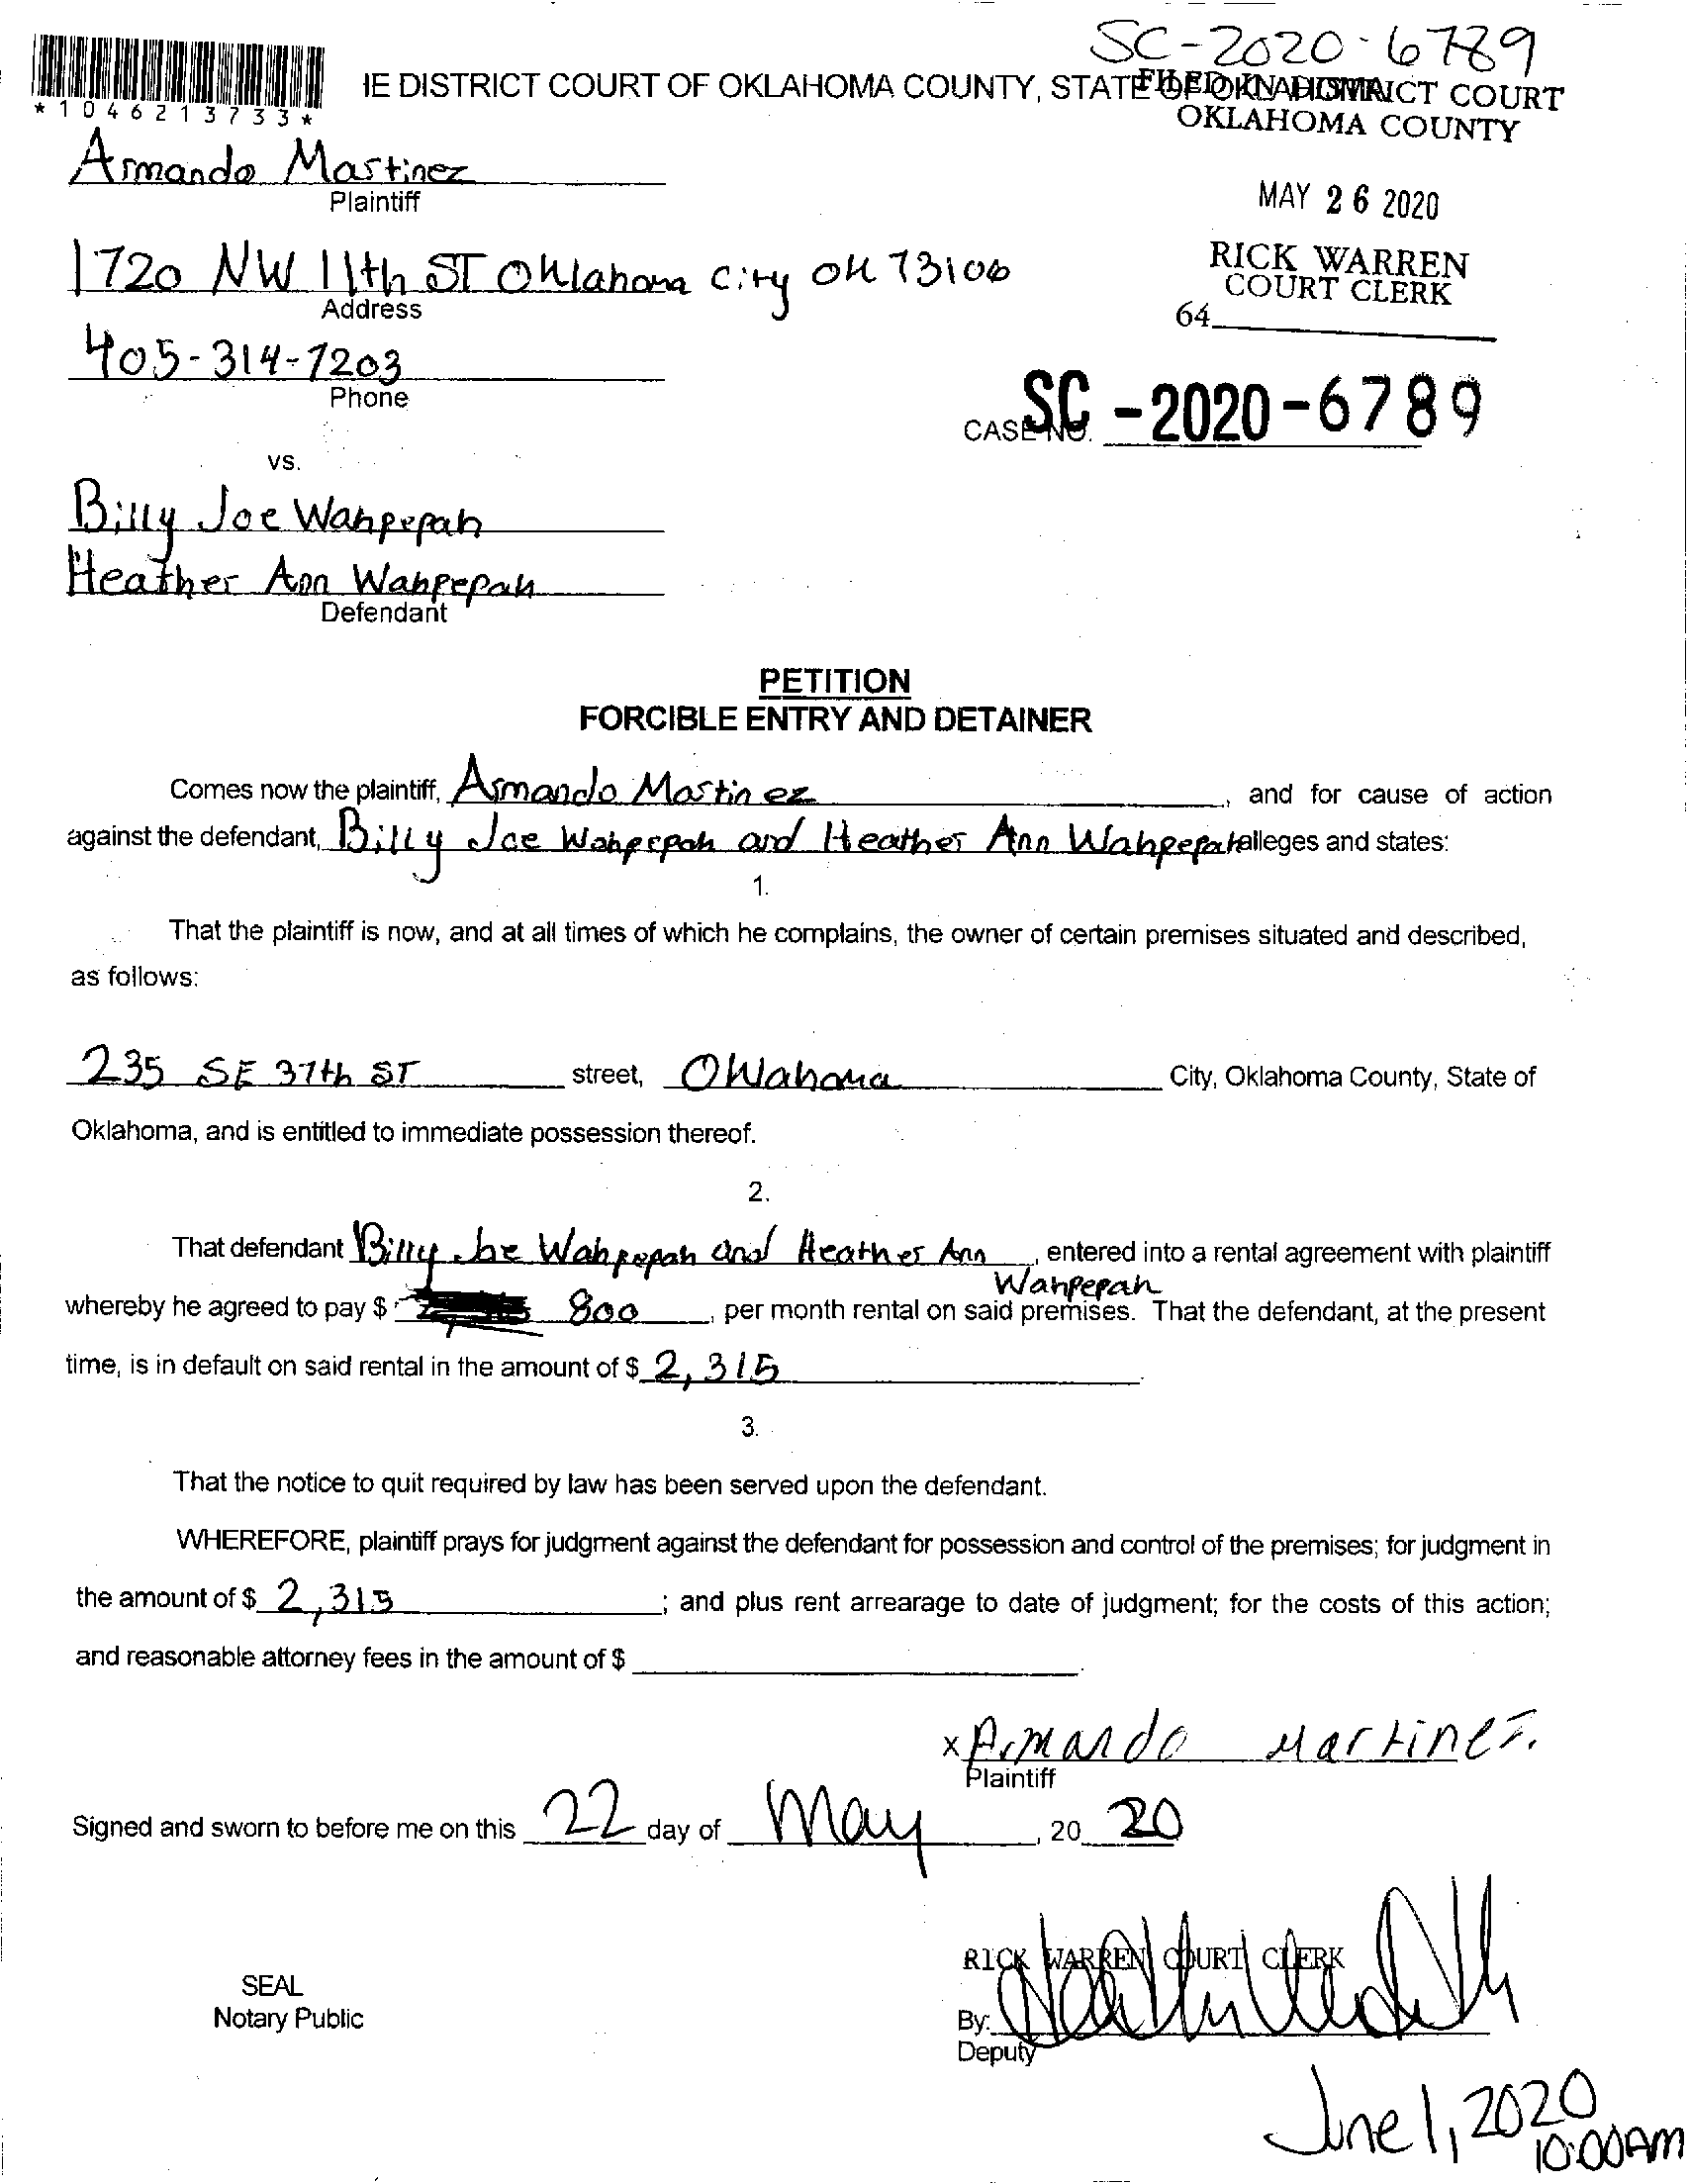 SC-2020-6789
IE DISTRICT COURT OF OKLAHOMA COUNTY, STATE OF OKLAHOMA
FILED IN DISTRICT COURT
OKLAHOMA COUNTY
*1046213733*
Armando Martinez
Plaintiff
MAY 26 2020
1720 NW 11th ST Oklahoma City OK 73106
Address
RICK WARREN
COURT CLERK
64
405-314-7203
Phone
CASE NO. SC-2020-6789
vs.
Billy Joe Wahpepah
Heather Ann Wahpepah
Defendant
PETITION
FORCIBLE ENTRY AND DETAINER
Comes now the plaintiff, Armando Martinez, and for cause of action
against the defendant, Billy Joe Wahpepah and Heather Ann Wahpepah alleges and states:
1.
That the plaintiff is now, and at all times of which he complains, the owner of certain premises situated and described,
as follows:
235 SE 37th ST street, Oklahoma City, Oklahoma County, State of
Oklahoma, and is entitled to immediate possession thereof.
2.
That defendant Billy Joe Wahpepah and Heather Ann Wahpepah, entered into a rental agreement with plaintiff
whereby he agreed to pay $ 800, per month rental on said premises. That the defendant, at the present
time, is in default on said rental in the amount of $ 2,315.
3.
That the notice to quit required by law has been served upon the defendant.
WHEREFORE, plaintiff prays for judgment against the defendant for possession and control of the premises; for judgment in
the amount of $ 2,315; and plus rent arrearage to date of judgment; for the costs of this action;
and reasonable attorney fees in the amount of $
x Armando Martinez.
Plaintiff
Signed and sworn to before me on this 22 day of May, 20 20
RICK WARREN COURT CLERK
SEAL
Notary Public
By:
Deputy
June 1, 2020
10:00AM